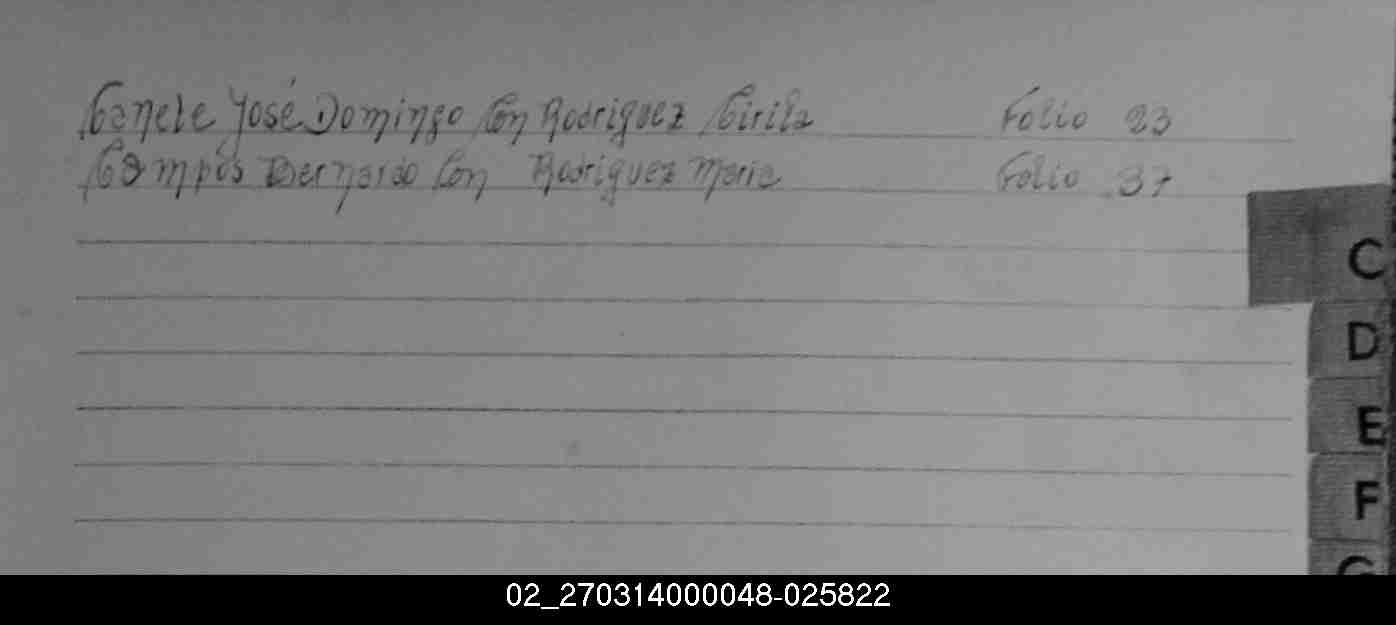 Canete José Domingo Con Rodriguez Cirila Folio 23
Campos Bernardo Con Rodriguez Maria Folio 37
C
D
E
F
G
02_270314000048-025822